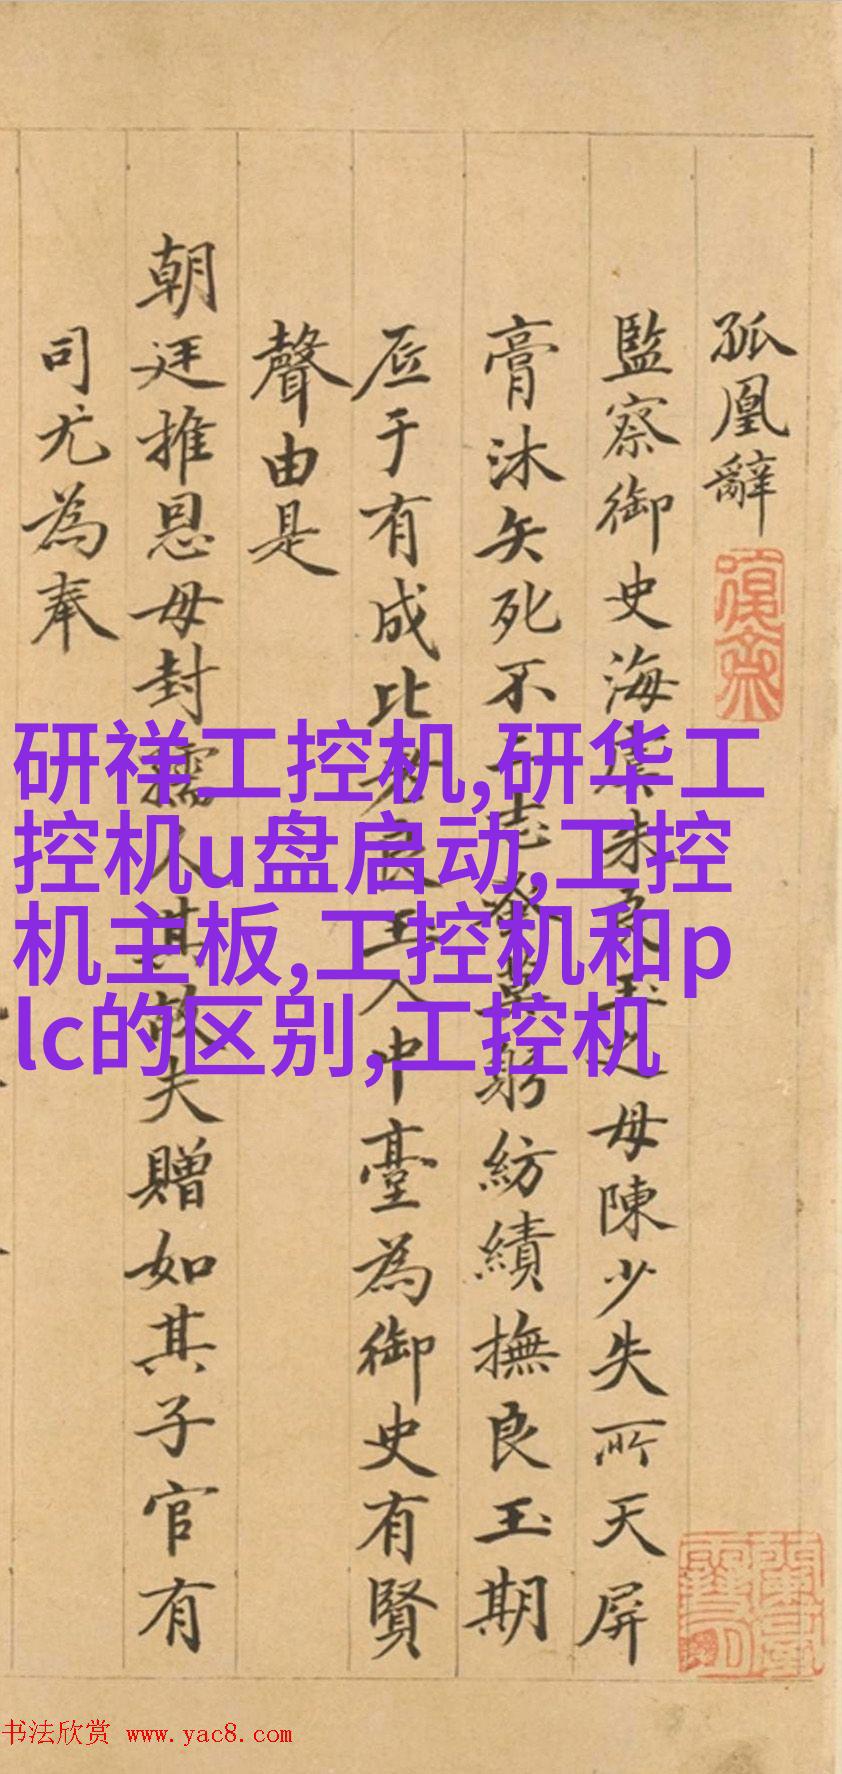 孤凰辭
監察御史海虞朱良玉之母陳少失所天屏
膏沐矢死不二志發篋躬紡績撫良玉期
底于有成比者良玉入中臺為御史有賢
聲由是
朝廷推恩母封孺人其故夫贈如其子官有
司尤為奉
研祥工控机,研华工
控机u盘启动,工控
机主板,工控机和p
lc的区别,工控机
书法欣赏 www.yac8.com